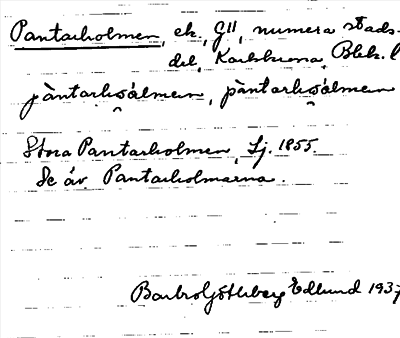 Pantarholmen, ek., GII, numera stads-
del, Karlskrona, Blek. l
pàntarhòálmen, pàntarhòálmen
Stora Pantarholmen, Lj. 1855.
Se äv. Pantarholmarna.
Barbro Götlberg Edlund 1937